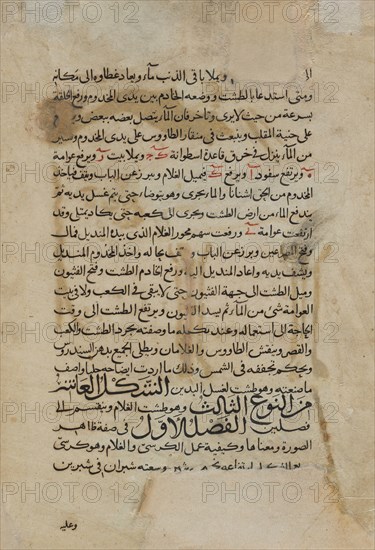 ويملا باقى الذنب ماء ويعاد غطاوه الى مكانه
ومتى استدعا بالطشت ووضعه الخادم بين يدى المخدوم ورفع الحلقة
بسرعة من حيث لا يرى وتاخر فان الما يتصل بعضه ببعض
على حنية المقلب وينبعث فى منقار الطاووس على يدى المخدوم ويسير
من الما ينزل فى خرق قاعدة اسطوانة ويملا بيت ويرفع عوامة
ويرتفع سفود ويرفع فيميل الغلام ويبرز عن الباب ويقف فياخذ
المخدوم من الحق اشنانا والما يجرى وهو يتوضا حتى يتم غسل يديه
يندفع الما من ارض الطشت ويجرى الى كعبه حتى كاد يمتلى وقد
ارتفعت عوامة ورفعت سهم محور الغلام الذى بيده المنديل فمال
وفتح المصراعين وبرز عن الباب واخذ المخدوم المنديل
ونشف يديه واعاد المنديل ورفع الخادم الطشت وفتح الفثيون
وميل الطشت الى جهة الفثيون حتى لا يبقى فى الكعب ولا فى بيت
العوامة شى من الما ثم يسد الفثيون ويرفع الطشت الى وقت
الحاجة الى استعماله وعند تكميله ما وصفته يجرد الطشت والكعب
والقصر وينقش الطاووس والغلامان ويطلى الجميع بدهن السندروس
ويحكم تجفيفه فى الشمس وذلك ما اردت ايضاحه جليا واصف
ما صنعته وهو طشت لغسل اليدين الشكل العاشر
من النوع الثالث وهو طشت الغلام وينقسم الى
فصلين الفصل الاول فى صفة ظاهر
الصورة ومعناها وكيفية عمل الكرسى والغلام وهو كرسى
وسعته شبران فى شبرين
وعليه